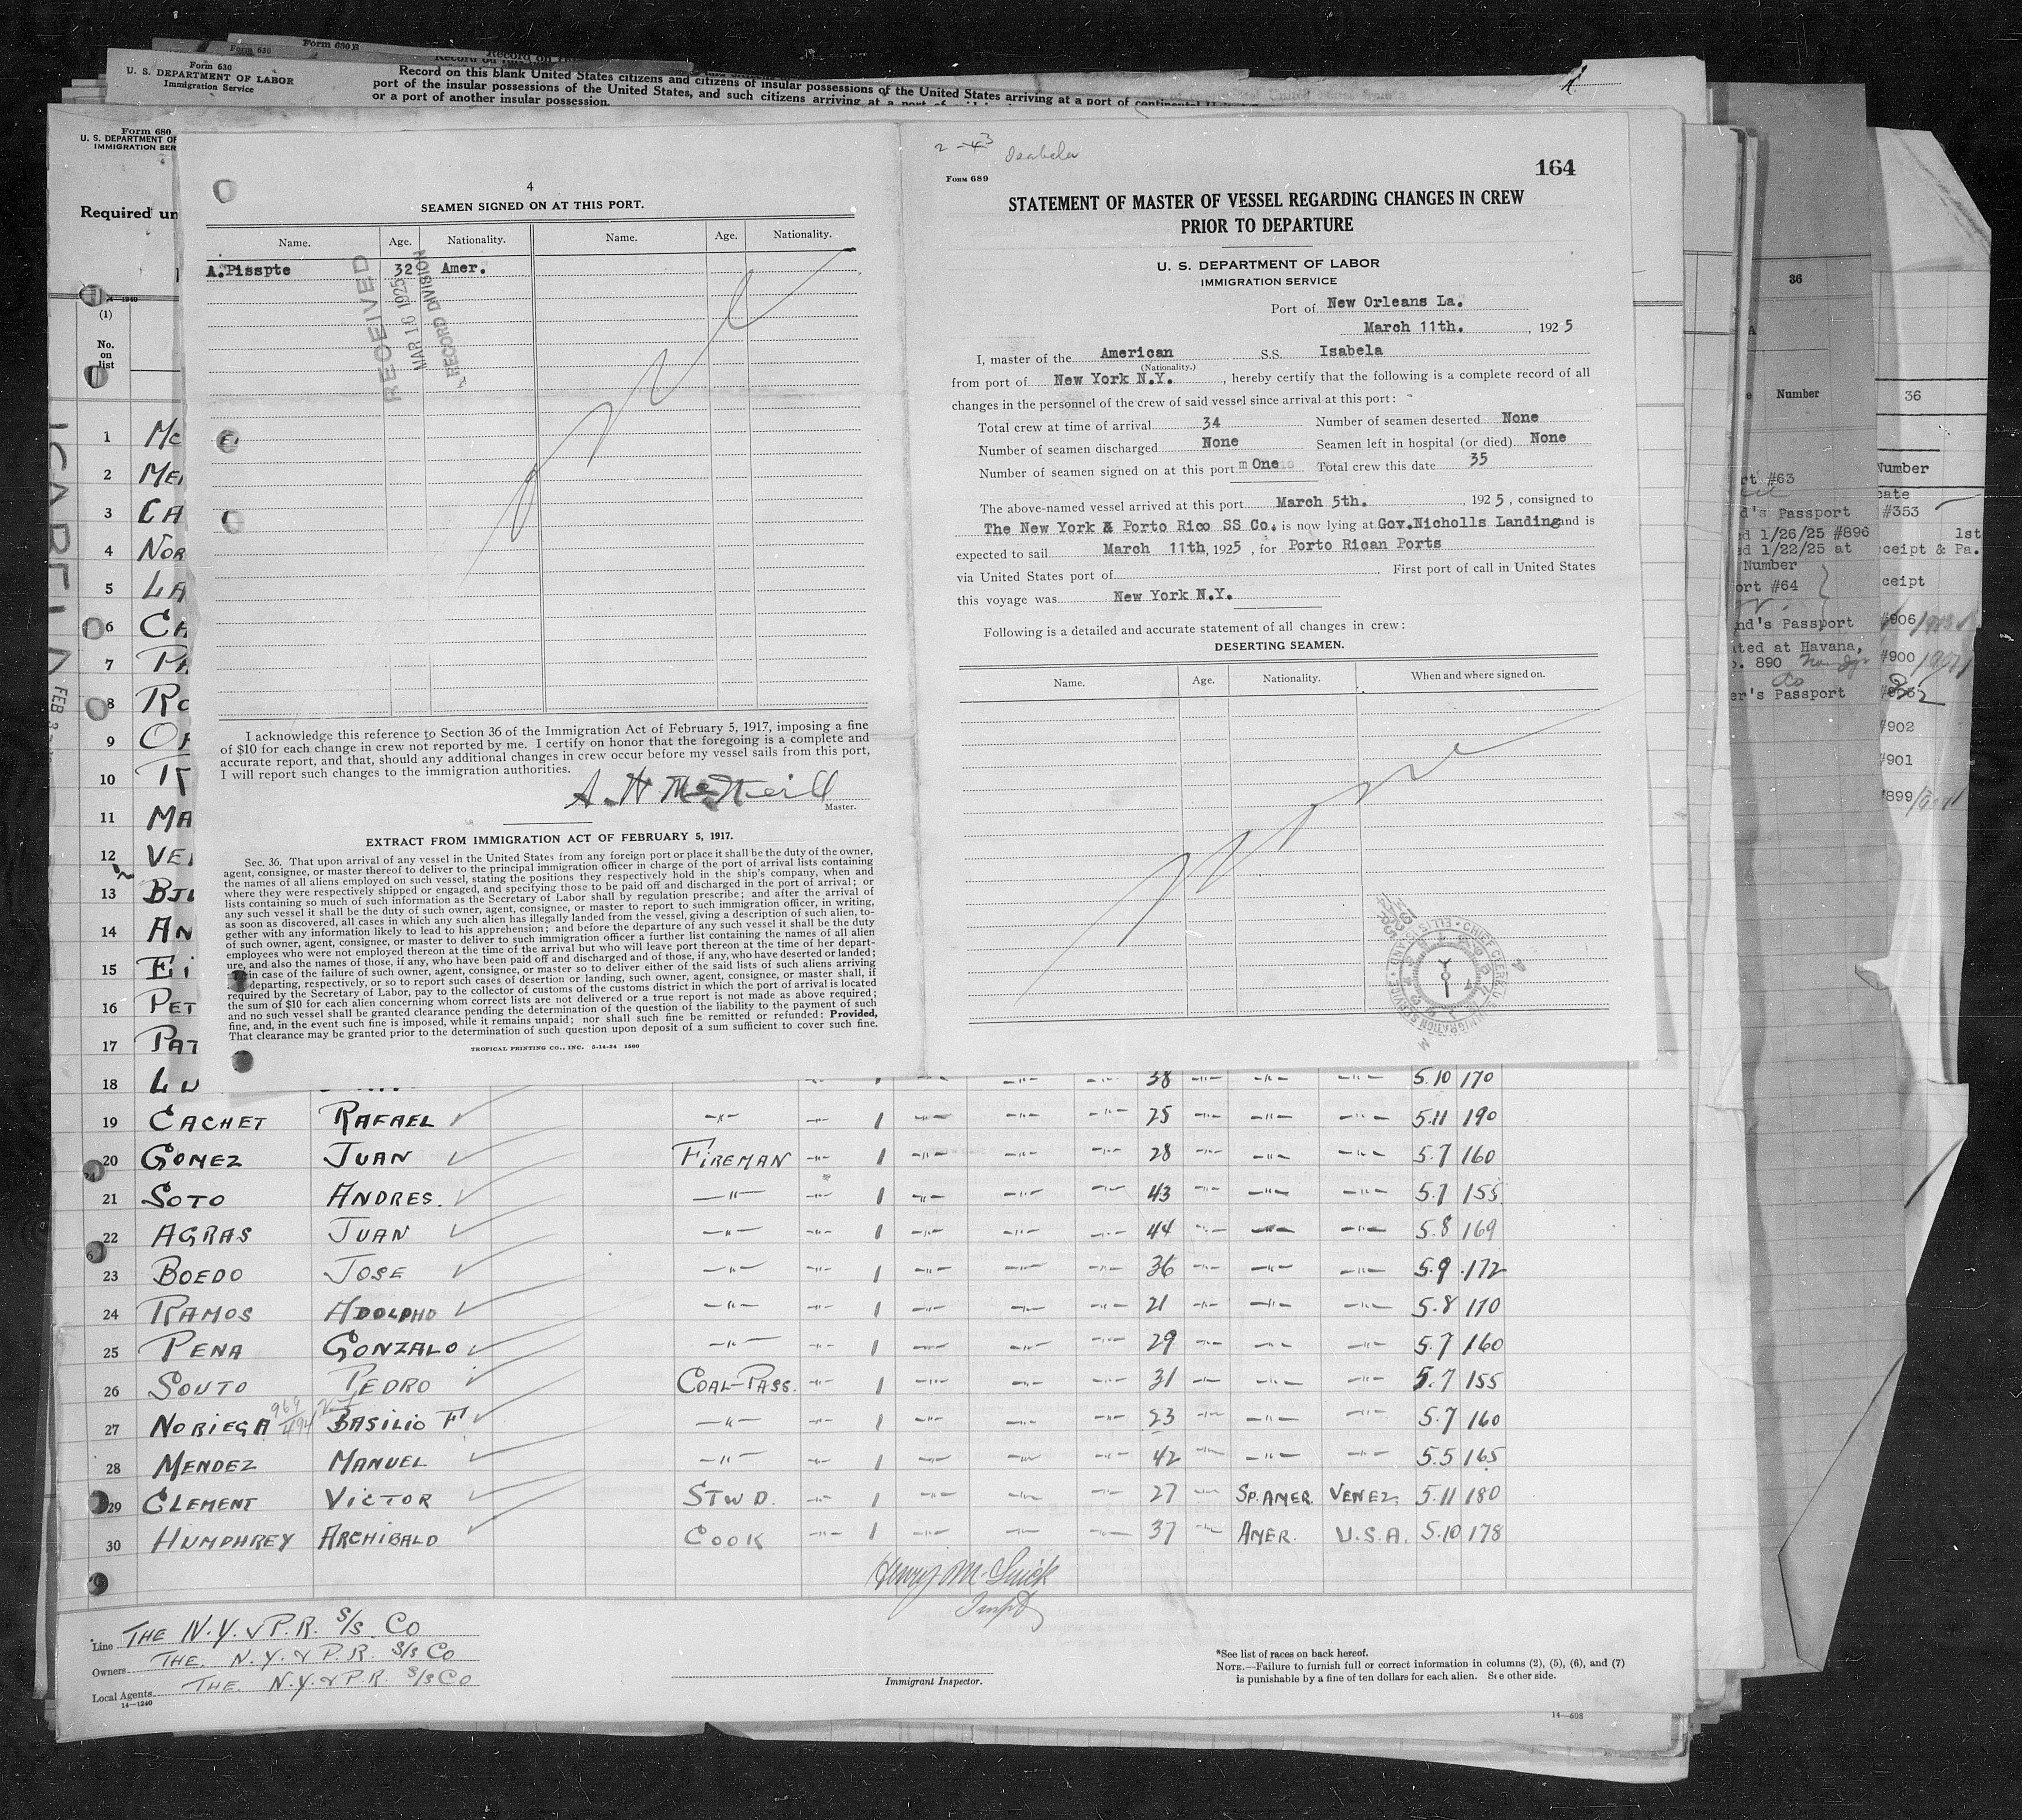 Form 630
Form 630 B
Form 630
U. S. DEPARTMENT OF LABOR
Immigration Service
Record on this blank United States citizens and citizens of insular possessions of the United States arriving at a port of continental
port of the insular possessions of the United States, and such citizens arriving at a port of
or a port of another insular possession.
Form 680
U. S. DEPARTMENT OF
IMMIGRATION SER
Required un
14-1240
(1)
No.
on
list
ISABELA
FEB 3
4
SEAMEN SIGNED ON AT THIS PORT.
Name. Age. Nationality. Name. Age. Nationality.
A.Pisspte 32 Amer.
RECEIVED
MAR 16 1925
RECORD DIVISION
I acknowledge this reference to Section 36 of the Immigration Act of February 5, 1917, imposing a fine
of $10 for each change in crew not reported by me. I certify on honor that the foregoing is a complete and
accurate report, and that, should any additional changes in crew occur before my vessel sails from this port,
I will report such changes to the immigration authorities.
A. H McNeill
Master.
EXTRACT FROM IMMIGRATION ACT OF FEBRUARY 5, 1917.
Sec. 36. That upon arrival of any vessel in the United States from any foreign port or place it shall be the duty of the owner,
agent, consignee, or master thereof to deliver to the principal immigration officer in charge of the port of arrival lists containing
the names of all aliens employed on such vessel, stating the positions they respectively hold in the ship's company, when and
where they were respectively shipped or engaged, and specifying those to be paid off and discharged in the port of arrival; or
lists containing so much of such information as the Secretary of Labor shall by regulation prescribe; and after the arrival of
any such vessel it shall be the duty of such owner, agent, consignee, or master to report to such immigration officer, in writing,
as soon as discovered, all cases in which any such alien has illegally landed from the vessel, giving a description of such alien, to-
gether with any information likely to lead to his apprehension; and before the departure of any such vessel it shall be the duty
of such owner, agent, consignee, or master to deliver to such immigration officer a further list containing the names of all alien
employees who were not employed thereon at the time of the arrival but who will leave port thereon at the time of her depart-
ure, and also the names of those, if any, who have been paid off and discharged and of those, if any, who have deserted or landed;
in case of the failure of such owner, agent, consignee, or master so to deliver either of the said lists of such aliens arriving
departing, respectively, or so to report such cases of desertion or landing, such owner, agent, consignee, or master shall, if
required by the Secretary of Labor, pay to the collector of customs of the customs district in which the port of arrival is located
the sum of $10 for each alien concerning whom correct lists are not delivered or a true report is not made as above required;
and no such vessel shall be granted clearance pending the determination of the question of the liability to the payment of such
fine, and, in the event such fine is imposed, while it remains unpaid; nor shall such fine be remitted or refunded: Provided,
That clearance may be granted prior to the determination of such question upon deposit of a sum sufficient to cover such fine.
TROPICAL PRINTING CO., INC. 5-14-24 1500
Isabela
164
FORM 689
STATEMENT OF MASTER OF VESSEL REGARDING CHANGES IN CREW
PRIOR TO DEPARTURE
U. S. DEPARTMENT OF LABOR
IMMIGRATION SERVICE
Port of New Orleans La.
March 11th. , 1925
I, master of the American S.S. Isabela
(Nationality.)
from port of New York N.Y. , hereby certify that the following is a complete record of all
changes in the personnel of the crew of said vessel since arrival at this port:
Total crew at time of arrival 34 Number of seamen deserted None
Number of seamen discharged None Seamen left in hospital (or died) None
Number of seamen signed on at this port One Total crew this date 35
The above-named vessel arrived at this port March 5th. , 1925, consigned to
The New York & Porto Rico SS Co. is now lying at Gov.Nicholls Landing and is
expected to sail March 11th, 1925, for Porto Rican Ports
via United States port of First port of call in United States
this voyage was New York N.Y.
Following is a detailed and accurate statement of all changes in crew:
DESERTING SEAMEN.
Name. Age. Nationality. When and where signed on.
None
CHIEF CLERK U.S. IMMIGRATION SERVICE ELLIS ISLAND
36
Number
rt #63
d's Passport
ed 1/26/25 #896
ed 1/22/25 at
Number
ort #64
nd's Passport
ted at Havana,
890
er's Passport
36
Number
cate
#353
1st
ceipt & Pa.
ceipt
#906
#900
#902
#901
#899
1 Mc
2 ME
3 CA
4 NOR
5 LA
6 CA
7 PA
8 RO
9
10
11 MA
12 VE
13 BJ
14 AN
15 Ei
16 PET
17 PAT
18 LU 38 5.10 170
19 CACHET RAFAEL -"- -"- 1 -"- -"- -"- 25 -"- -"- -"- 5.11 190
20 GOMEZ JUAN FIREMAN -"- 1 -"- -"- -"- 28 -"- -"- -"- 5.7 160
21 SOTO ANDRES. -"- -"- 1 -"- -"- -"- 43 -"- -"- -"- 5.7 155
22 AGRAS JUAN -"- -"- 1 -"- -"- -"- 44 -"- -"- -"- 5.8 169
23 BOEDO JOSE -"- -"- 1 -"- -"- -"- 36 -"- -"- -"- 5.9 172
24 RAMOS ADOLPHO -"- -"- 1 -"- -"- -"- 21 -"- -"- -"- 5.8 170
25 PENA GONZALO -"- -"- 1 -"- -"- -"- 29 -"- -"- -"- 5.7 160
26 SOUTO PEDRO COAL-PASS. -"- 1 -"- -"- -"- 31 -"- -"- -"- 5.7 155
27 NORIEGA BASILIO F -"- -"- 1 -"- -"- -"- 23 -"- -"- -"- 5.7 160
28 MENDEZ MANUEL -"- -"- 1 -"- -"- -"- 42 -"- -"- -"- 5.5 165
29 CLEMENT VICTOR STWD. -"- 1 -"- -"- -"- 27 -"- SP.AMER. VENEZ. 5.11 180
30 HUMPHREY ARCHIBALD COOK -"- 1 -"- -"- -"- 37 -"- AMER. U.S.A. 5.10 178
Line THE N.Y. & P.R. S/S. Co
Owners THE. N.Y. & P.R. S/S Co
Local Agents THE. N.Y. & P.R. S/S Co
14-1240
Immigrant Inspector.
*See list of races on back hereof.
NOTE.—Failure to furnish full or correct information in columns (2), (5), (6), and (7)
is punishable by a fine of ten dollars for each alien. See other side.
14-608